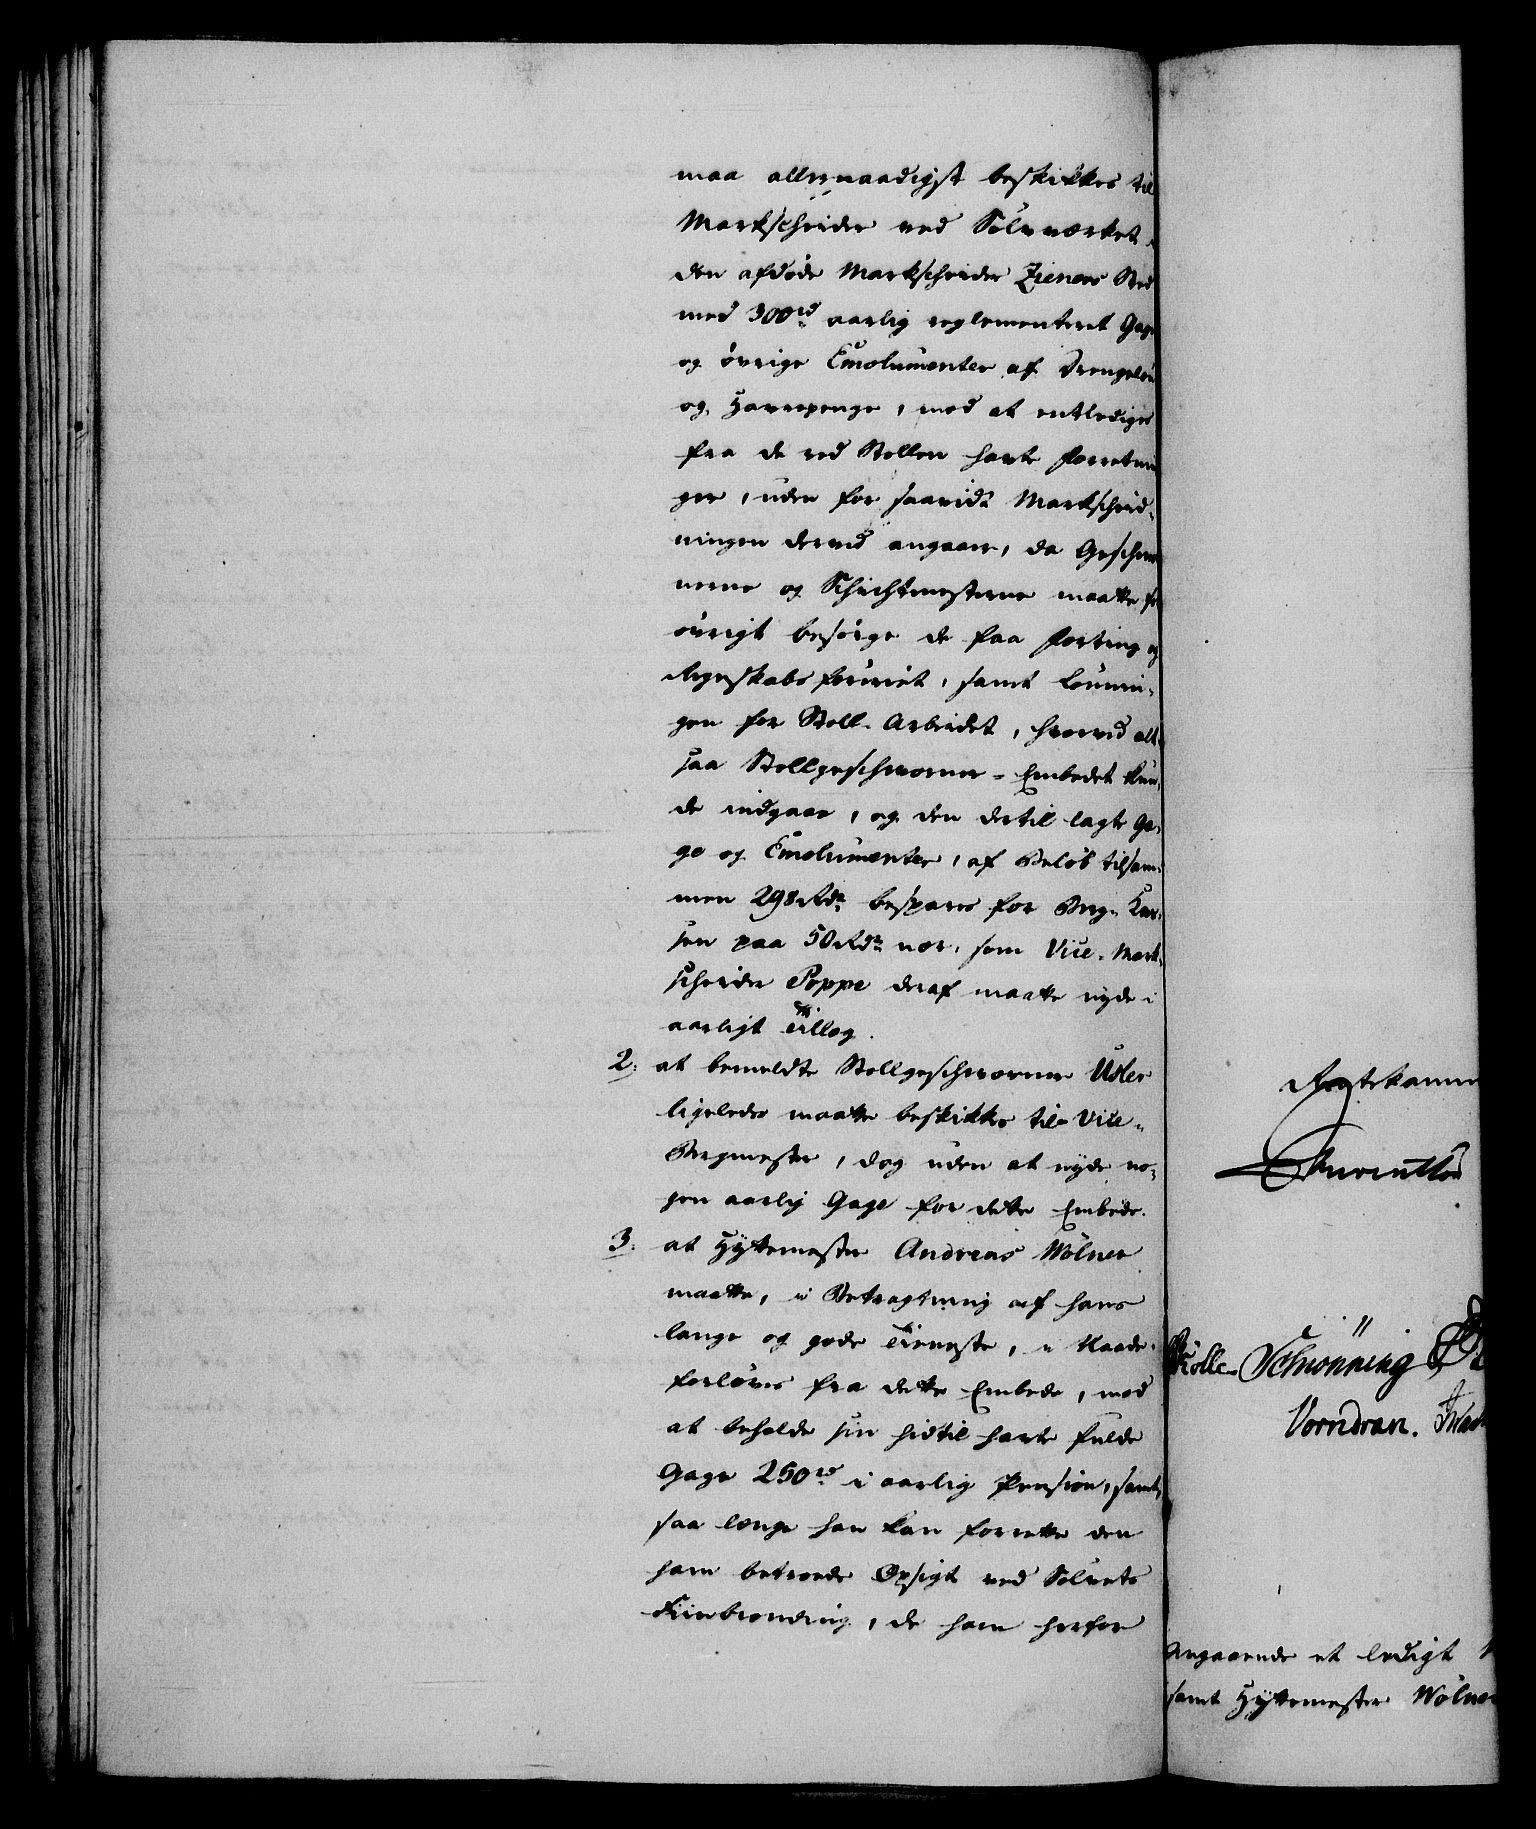 maa allernaadigst beskikkes til
Markscheider ved Sølvværket i
den afdøde Markscheider Zieners Sted
med 300 rd aarlig reglementeret Gage
og øvrige Emolumenter af Drengeløn
og Havrepenge, mod at entlediges
fra de ved Stollen havte Forretnin
ger, uden for saavidt Markscheid-
ningen derved angaaer, da Geschwor
nerne og Schichtmesterne maatte for
øvrigt besørge de faa Forting og
Regnskabs førviet, samt Lønnin-
gen for Stoll-Arbeidet, hvorved alt
saa Stollgeschworner-Embedet kun-
de indgaae, og den dertil lagte Ga-
ge og Emolumenter, af Beløb tilsam-
men 298 Rdr bespares for Berg-Kas-
sen paa 50 Rdr nær, som Vice-Mark-
scheider Poppe deraf maatte nyde i
aarligt Tillæg.
2. at bemeldte Stollgeschworner Usler
ligeledes maatte beskikkes til Vice-
Bergmester, dog uden at nyde no-
gen aarlig Gage for dette Embede.
3. at Hyttemester Andreas Wølner
maatte, i Betragtning af hans
lange og gode Tieneste, i Naade
forløves fra dette Embede, mod
at beholde sin hidtil havte fulde
Gage 250 rd i aarlig Pension, samt,
saa længe han kan forrette den
ham betroede Opsigt ved Sølvets
Fiinbrænding, de ham herfor
Rentekamm
Schiønning
Vorndran.
angaaende et ledigt
samt Hyttemester Wølner